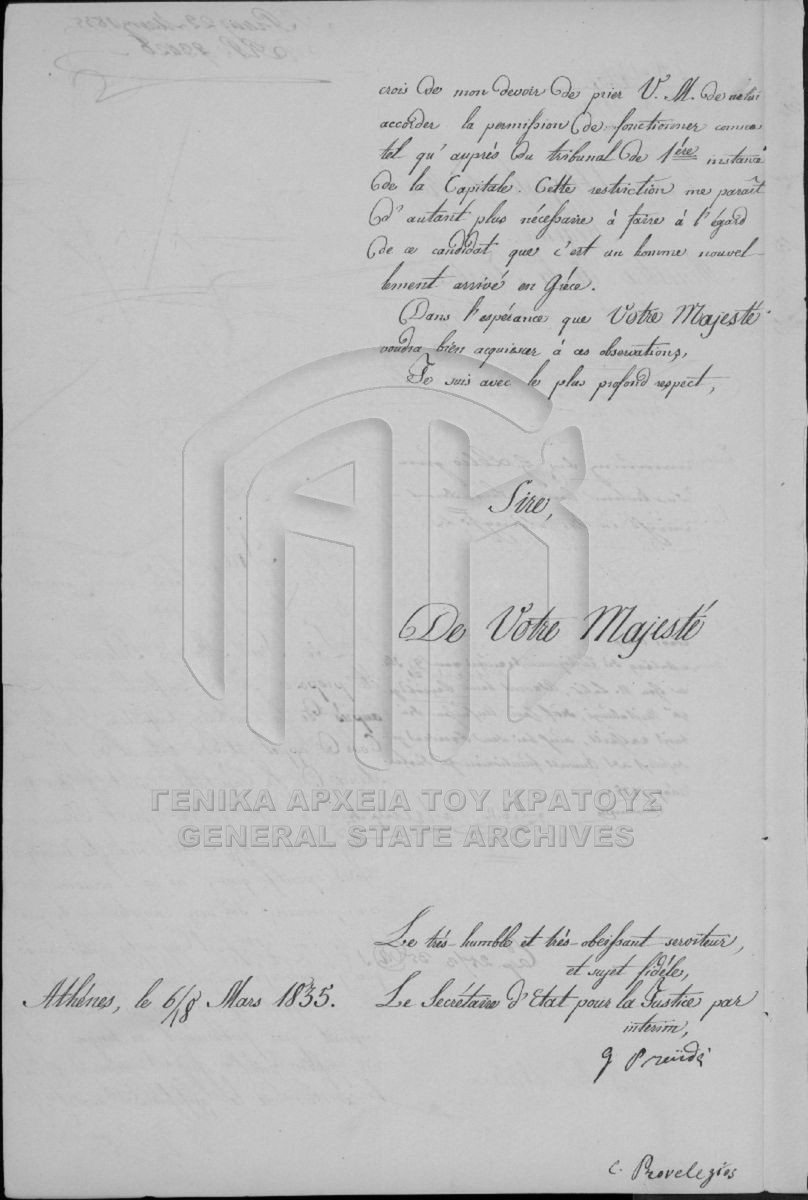 crois de mon devoir de prier V. M. de ne lui
accorder la permission de fonctionner comme
tel qu'auprès du tribunal de 1ère instance
de la Capitale. Cette restriction me paraît
d'autant plus nécessaire à faire à l'égard
de ce candidat que c'est un homme nouvel-
lement arrivé en Grèce.
Dans l'espérance que Votre Majesté
voudra bien acquiescer à ces observations,
Je suis avec le plus profond respect,
Sire,
De Votre Majesté
ΓΕΝΙΚΑ ΑΡΧΕΙΑ ΤΟΥ ΚΡΑΤΟΥΣ
GENERAL STATE ARCHIVES
Le très-humble et très-obéissant serviteur,
et sujet fidèle,
Athénes, le 6/18 Mars 1835.
Le Secrétaire d'Etat pour la Justice par
interim,
C. Provelegios